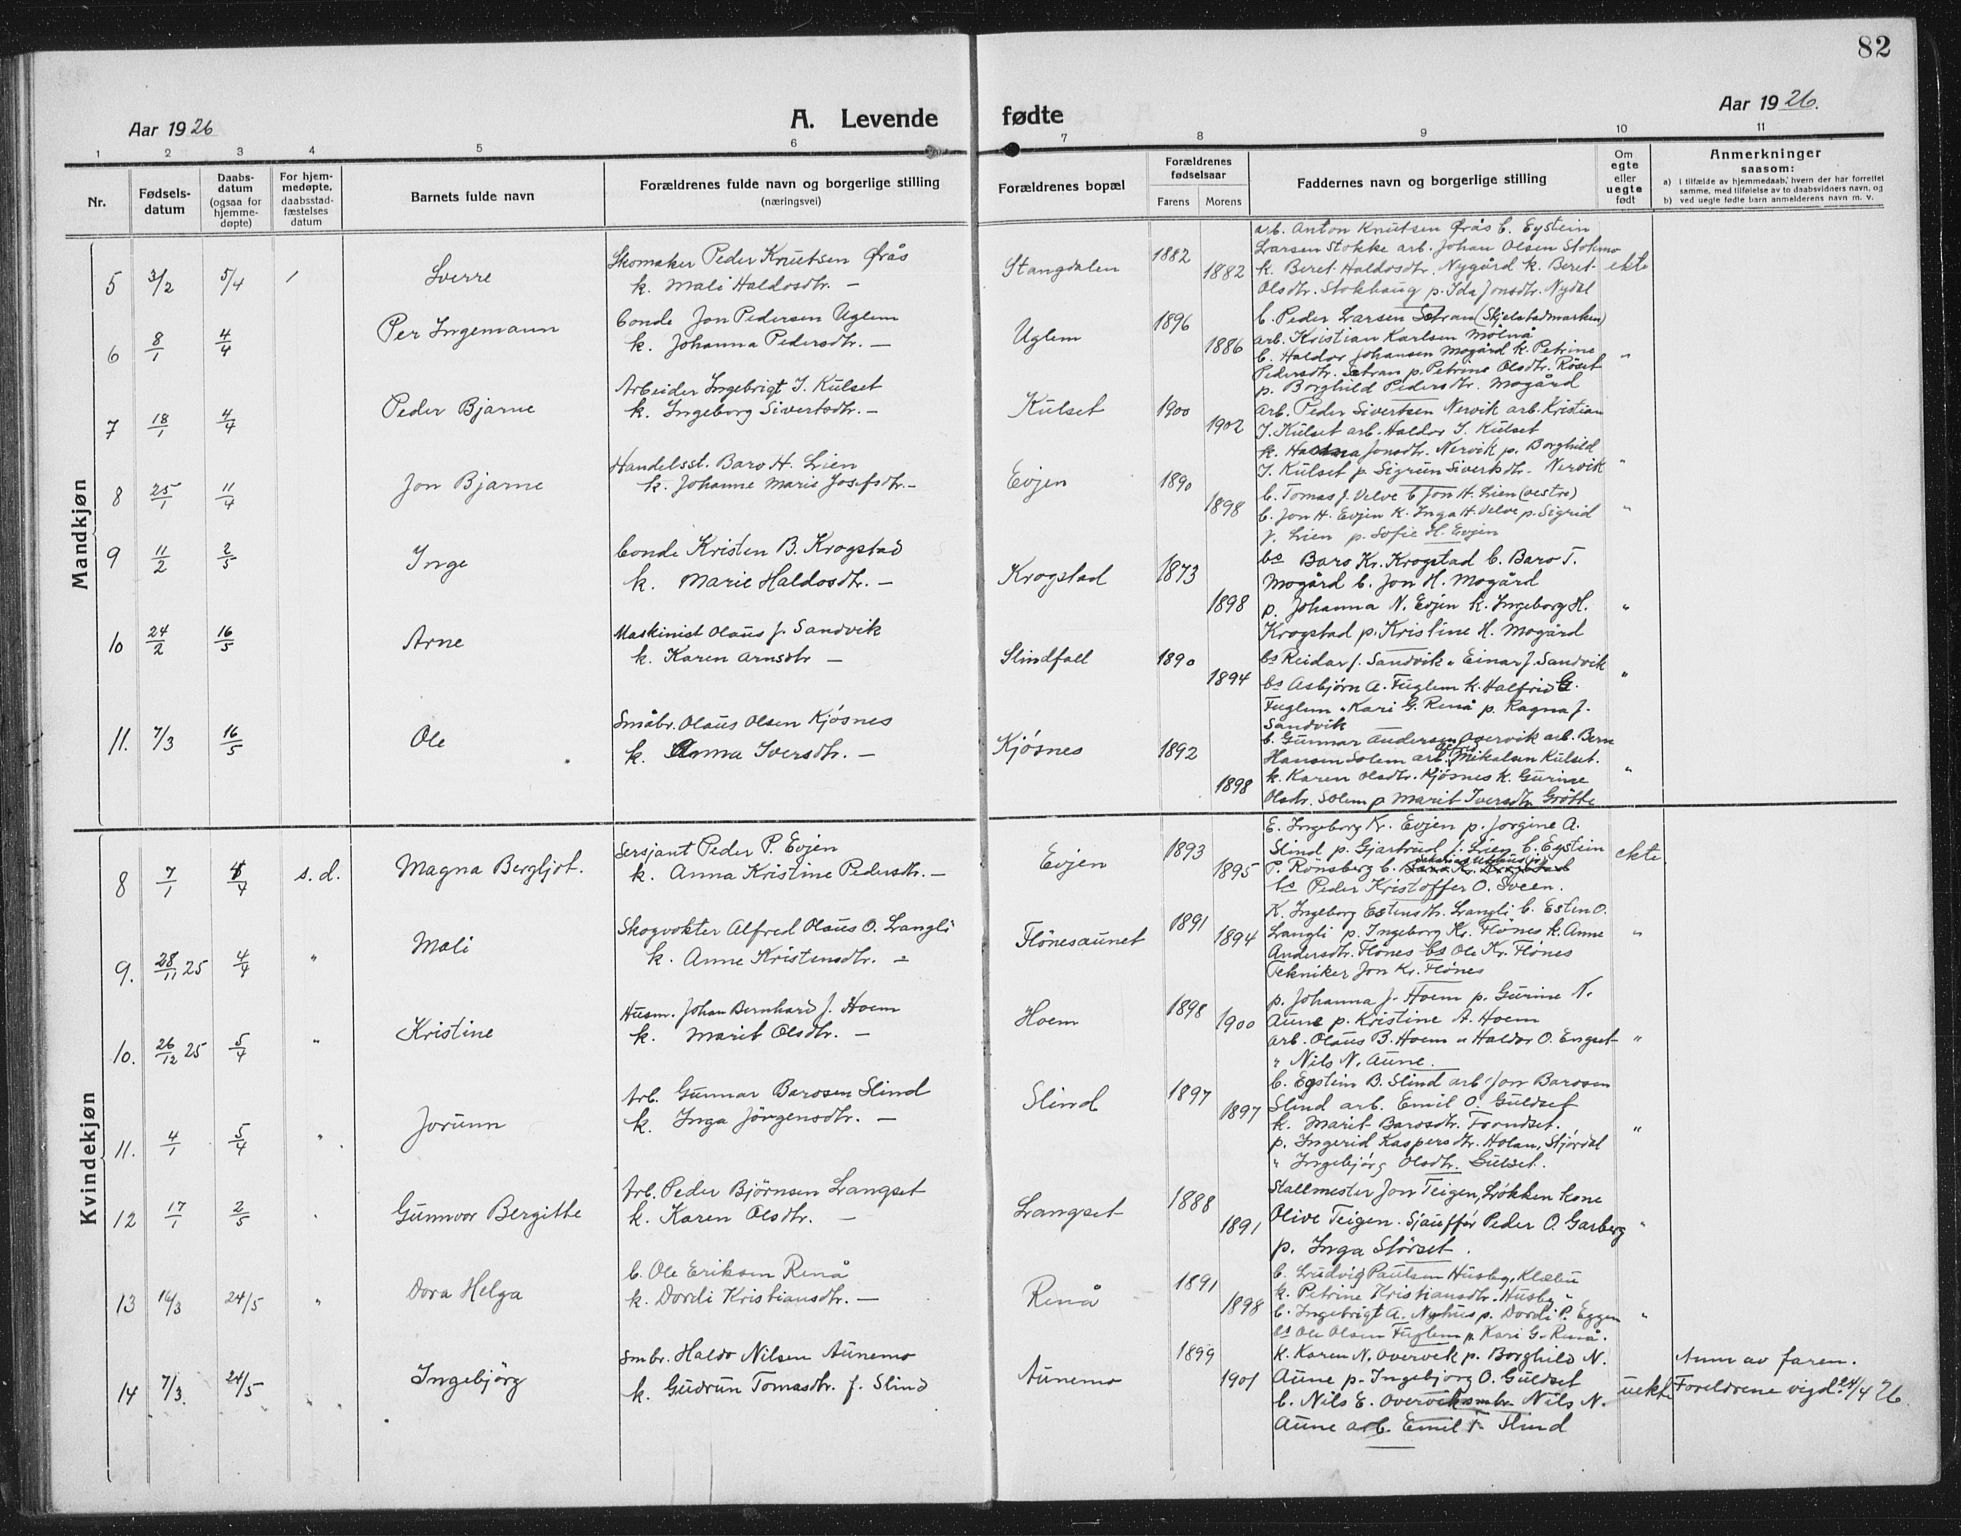 82
Aar 1926
A. Levende fødte
Aar 1926.
1 2 3 4 5 6 7 8 9 10 11
Nr.
Fødsels-
datum
Daabs-
datum
(ogsaa for
hjemme-
døpte)
For hjem-
medøpte,
daabsstad-
fæstelses
datum
Barnets fulde navn
Forældrenes fulde navn og borgerlige stilling
(næringsvei)
Forældrenes bopæl
Forældrenes
fødselsaar
Farens Morens
Faddernes navn og borgerlige stilling
Om
egte
eller
uegte
født
Anmerkninger
saasom:
a) I tilfælde av hjemmedaab, hvem der har forrettet
samme, med tilføielse av to daabsvidners navn, og
b) ved uegte fødte barn anmelderens navn m. v.
Mandkjøn
5 3/2 5/4 / Sverre
Skomaker Peder Knutsen Øfrås
k. Mali Haldosdtr. —
Stangdalen 1882 1882
arb. Anton Knutsen Øfrås b. Eystein
Larsen Stokke arb. Johan Olsen Stokmo
k. Beret Haldosdtr. Nygård k. Beret
Olsdtr. Stokhaug p. Ida Jonsdtr. Nydal
ekte
6 8/1 4/4 Per Ingemann
bonde Jon Pedersen Uglem
k. Johanna Pedersdtr. —
Uglem 1896 1886
b. Peder Larsen Sætran (Skjelstadmarken)
arb. Kristian Karlsen Mølnå
b. Haldor Johansen Mogård k. Petrine
Pedersdtr. Sætran p. Petrine Olsdtr. Røset
p. Borghild Pedersdtr. Mogård
"
7 18/1 4/4 Peder Bjarne
Arbeider Ingebrigt J. Kulset
k. Ingeborg Sivertsdtr. —
Kulset 1900 1902
arb. Peder Sivertsen Nervik arb. Kristian
J. Kulset arb. Haldor J. Kulset
k. Jonsdtr. Nervik p. Borghild
J. Kulset p. Sigrun Sivertsdtr. Nervik
"
8 25/1 11/4 Jon Bjarne
Handelsst. Baro H. Lien
k. Johanne Marie Josefsdtr. —
Evjen 1890 1898
b. Tomas J. Velve b. Jon H. Lien (vestre)
b. Jon H. Evjen k. Inga H. Velve p. Sigrid
J. Lien p. Sofie H. Evjen
"
9 11/2 2/5 Inge
bonde Kristen B. Krogstad
k. Marie Haldosdtr. —
Krogstad 1873 1898
bs Baro Kr. Krogstad b. Baro T.
Mogård b. Jon H. Mogård
p. Johanna N. Evjen k. Ingeborg H.
Krogstad p. Kristine H. Mogård
"
10 24/2 16/5 Arne
Maskinist Olaus J. Sandvik
k. Karen Arnsdtr —
Slindfall 1890 1894
bs Reidar J. Sandvik " Einar J. Sandvik
bs Asbjørn A. Fuglem k. Halfrid G.
Fuglem " Kari G. Renå p. Ragna J.
Sandvik
"
11. 7/3 16/5 Ole
Småbr. Olaus Olsen Kjøsnes
k. Anna Iversdtr. —
Kjøsnes 1892 1898
b. Gunnar Andersen Overvik arb. Bern
Hansen Solem arb. Mikalsen Kulset.
k. Karen Olsdtr. Kjøsnes k. Gurine
Olsdtr. Solem p. Marit Iversdtr. Grøtte
"
Kvindekjøn
8 7/1 4/4 s.d. Magna Bergljot.
Sersjant Peder P. Evjen
k. Anna Kristine Pedersdtr. —
Evjen 1893 1895
E. Ingeborg Kr. Evjen p. Jorgine A.
Slind p. Gjartrud J. Lien b. Eystein
P. Rønsberg b.
bs Peder Kristoffer O. Sveen.
ekte
9. 28/11 25 4/4 " Mali
Skogvokter Alfred Olaus O. Langli
k. Anne Kristensdtr. —
Flønesaunet 1891 1894
K. Ingeborg Estensdtr. Langli b. Esten O.
Langli p. Ingeborg Kr. Flønes k. Anne
Andersdtr. Flønes bs Ole Kr. Flønes
Tekniker Jon Kr. Flønes
"
10. 26/12 25 5/4 " Kristine
Husm. Johan Bernhard J. Hoem
k. Marit Olsdtr. —
Hoem 1898 1900
p. Johanna J. Hoem p. Gurine N.
Aune p. Kristine A. Hoem
arb. Olaus B. Hoem " Haldor O. Engset
" Nils N. Aune.
"
11. 4/1 5/4 " Jorunn
Arb. Gunnar Barosen Slind
k. Inga Jørgensdtr. —
Slind 1897 1897
b. Eystein B. Slind arb Jon Barosen
Slind arb. Emil O. Guldset
k. Marit Barosdtr. Frondset.
p. Ingerid Kaspersdtr. Holan, Stjørdal
" Ingebjørg Olsdtr. Gulset.
"
12 17/1 2/5 " Gunnvor Bergitte
Arb. Peder Bjørnsen Langset
k. Karen Olsdtr. —
Langset 1888 1891
Stallmester Jon Teigen, Løkken kone
Olive Teigen. Sjauffør Peder O. Garberg
p. Inga Størset.
"
13 16/3 24/5 " Dora Helga
b. Ole Eriksen Renå
k. Dordi Kristiansdtr. —
Renå 1891 1898
b. Ludvig Paulsen Husby, Klæbu
k. Petrine Kristiansdtr. Husby "
b. Ingebrigt A. Nyhus p. Dordi P. Eggen
bs Ole Olsen Fuglem p. Kari G. Renå.
"
14 7/3 24/5 " Ingebjörg
Smbr. Haldo Nilsen Aunemo
k. Gudrun Tomasdtr. f. Slind
Aunemo 1899 1901
k. Karen N. Overvik p. Borghild N.
Aune p. Ingebjørg O. Guldset
b. Nils E. Overvik smbr. Nils N.
Aune arb. Emil T. Slind
uekte
Anm av faren.
Foreldrene vigd 24/4 26.